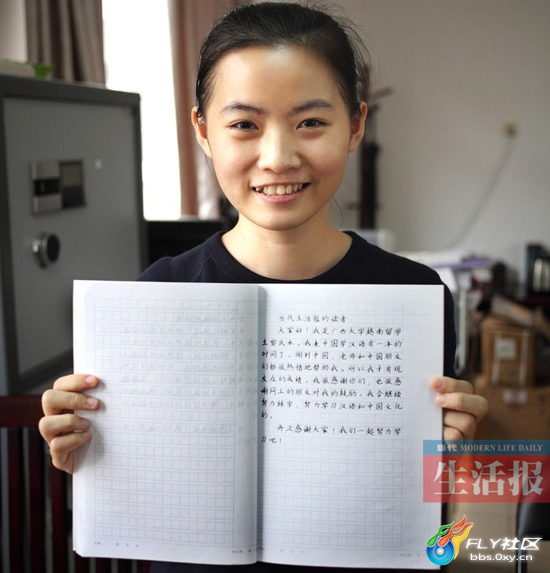 当代生活报的读者
大家好！我是广西大学越南留学
生黎氏禾。我来中国学汉语有一年的
时间了，刚到中国，老师和中国朋友
们都很热情地帮助我。所以我才有现
在的成绩。我很感谢你们，也很感
谢网上的朋友对我的鼓励。我会继续
努力练字，努力学习汉语和中国文化
的。
再次感谢大家！我们一起努力学
习吧！
当代 MODERN LIFE DAILY
生活报
FLY社区
bbs.0xy.cn